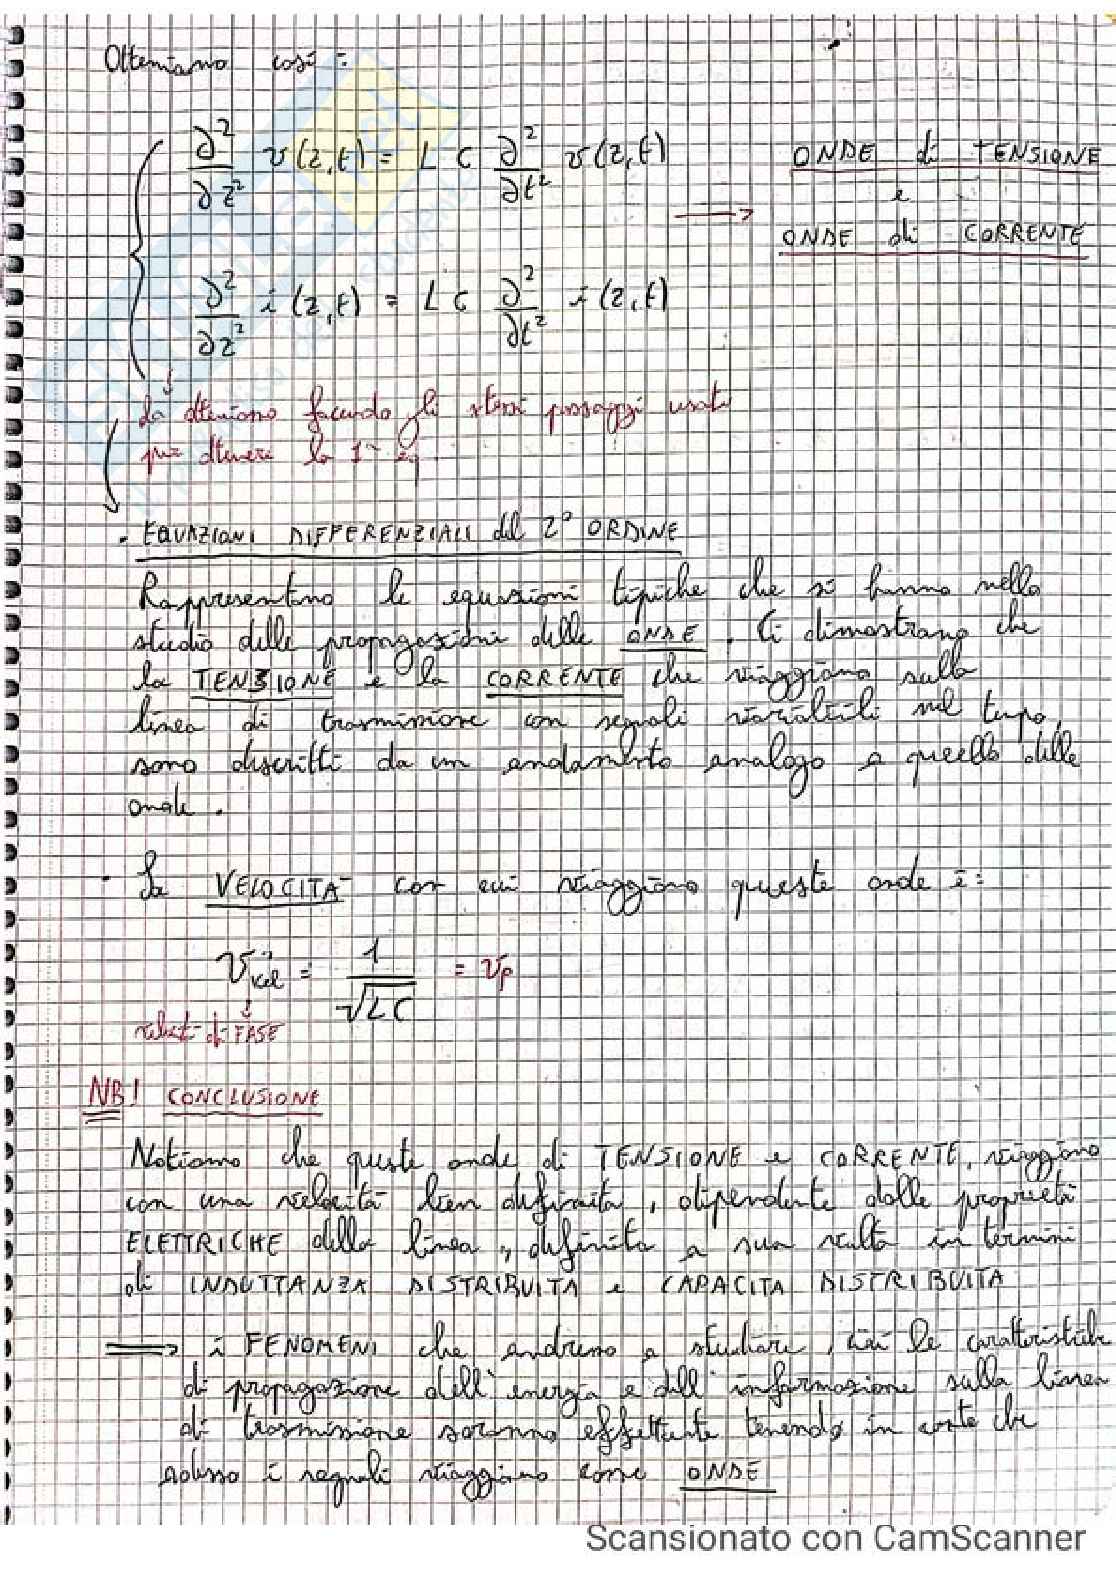 Otteniamo così:
∂²/∂z² v(z,t) = L C ∂²/∂t² v(z,t)
ONDE di TENSIONE
e
ONDE di CORRENTE
∂²/∂z² i(z,t) = L C ∂²/∂t² i(z,t)
La otteniamo facendo gli stessi passaggi usati
per ottenere la 1ª eq.
• EQUAZIONI DIFFERENZIALI del 2° ORDINE
Rappresentano le equazioni tipiche che si hanno nello
studio delle propagazioni delle ONDE. Ci dimostrano che
la TENSIONE e la CORRENTE che viaggiano sulla
linea di trasmissione con segnali variabili nel tempo,
sono descritti da un andamento analogo a quello delle
onde.
• La VELOCITÀ con cui viaggiano queste onde è:
v = 1/√LC = vp
velocità di FASE
NB! CONCLUSIONE
Notiamo che queste onde di TENSIONE e CORRENTE, viaggiano
con una velocità ben definita, dipendente dalle proprietà
ELETTRICHE della linea, definita a sua volta in termini
di INDUTTANZA DISTRIBUITA e CAPACITA DISTRIBUITA
⟹ i FENOMENI che andremo a studiare, cioè le caratteristiche
di propagazione dell'energia e dell'informazione sulla linea
di trasmissione saranno effettuate tenendo in conto che
adesso i segnali viaggiano come ONDE
Scansionato con CamScanner